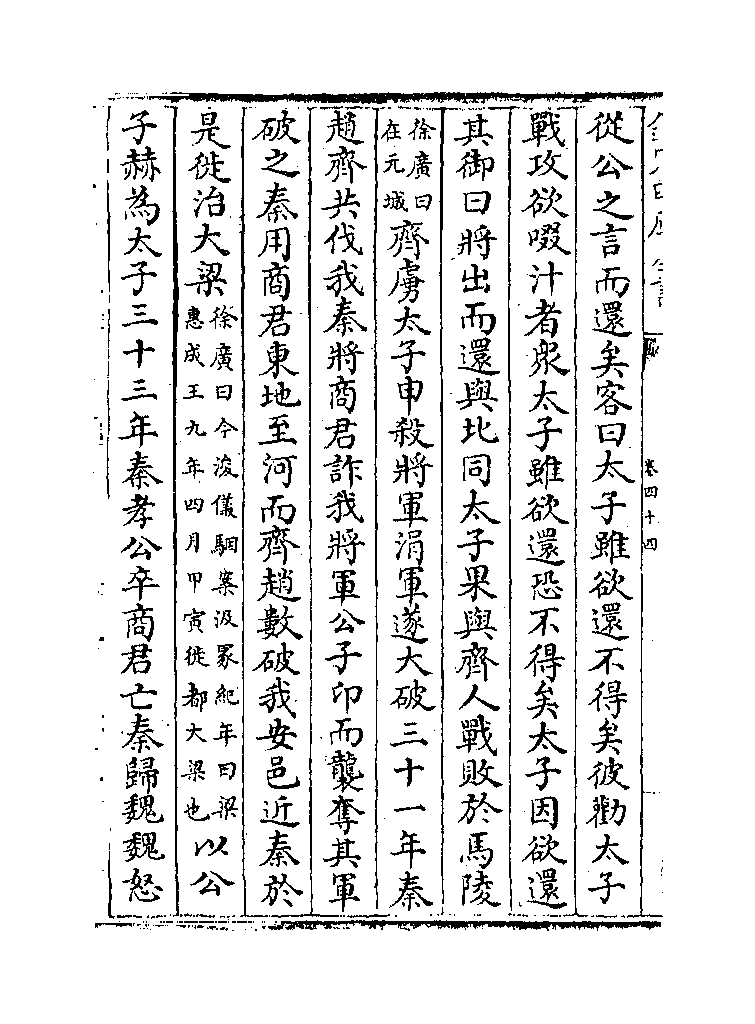 卷四十四
從公之言而還矣客曰太子雖欲還不得矣彼勸太子
戰攻欲啜汁者衆太子雖欲還恐不得矣太子因欲還
其御曰將出而還與北同太子果與齊人戰敗於馬陵
徐廣曰在元城齊虜太子申殺將軍涓軍遂大破三十一年秦
趙齊共伐我秦將商君詐我將軍公子卬而襲奪其軍
破之秦用商君東地至河而齊趙數破我安邑近秦於
是徙治大梁徐廣曰今浚儀駰案汲冢紀年曰梁惠成王九年四月甲寅徙都大梁也以公
子赫為太子三十三年秦孝公卒商君亡秦歸魏魏怒